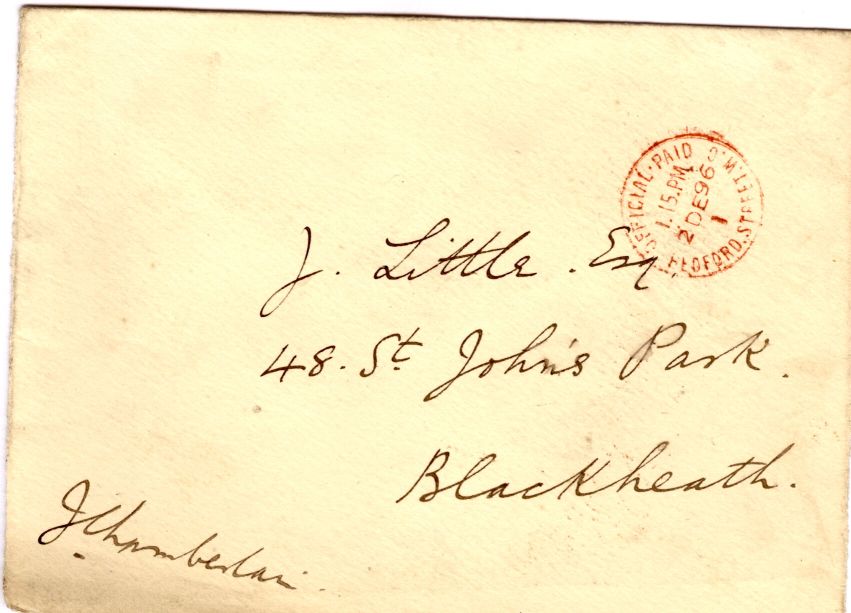 OFFICIAL·PAID
BEDFORD.STREET.W.C
1.15.PM
2 DE 96
1
J. Little. Esq.
48. St. John's Park.
Blackheath.
JChamberlain.